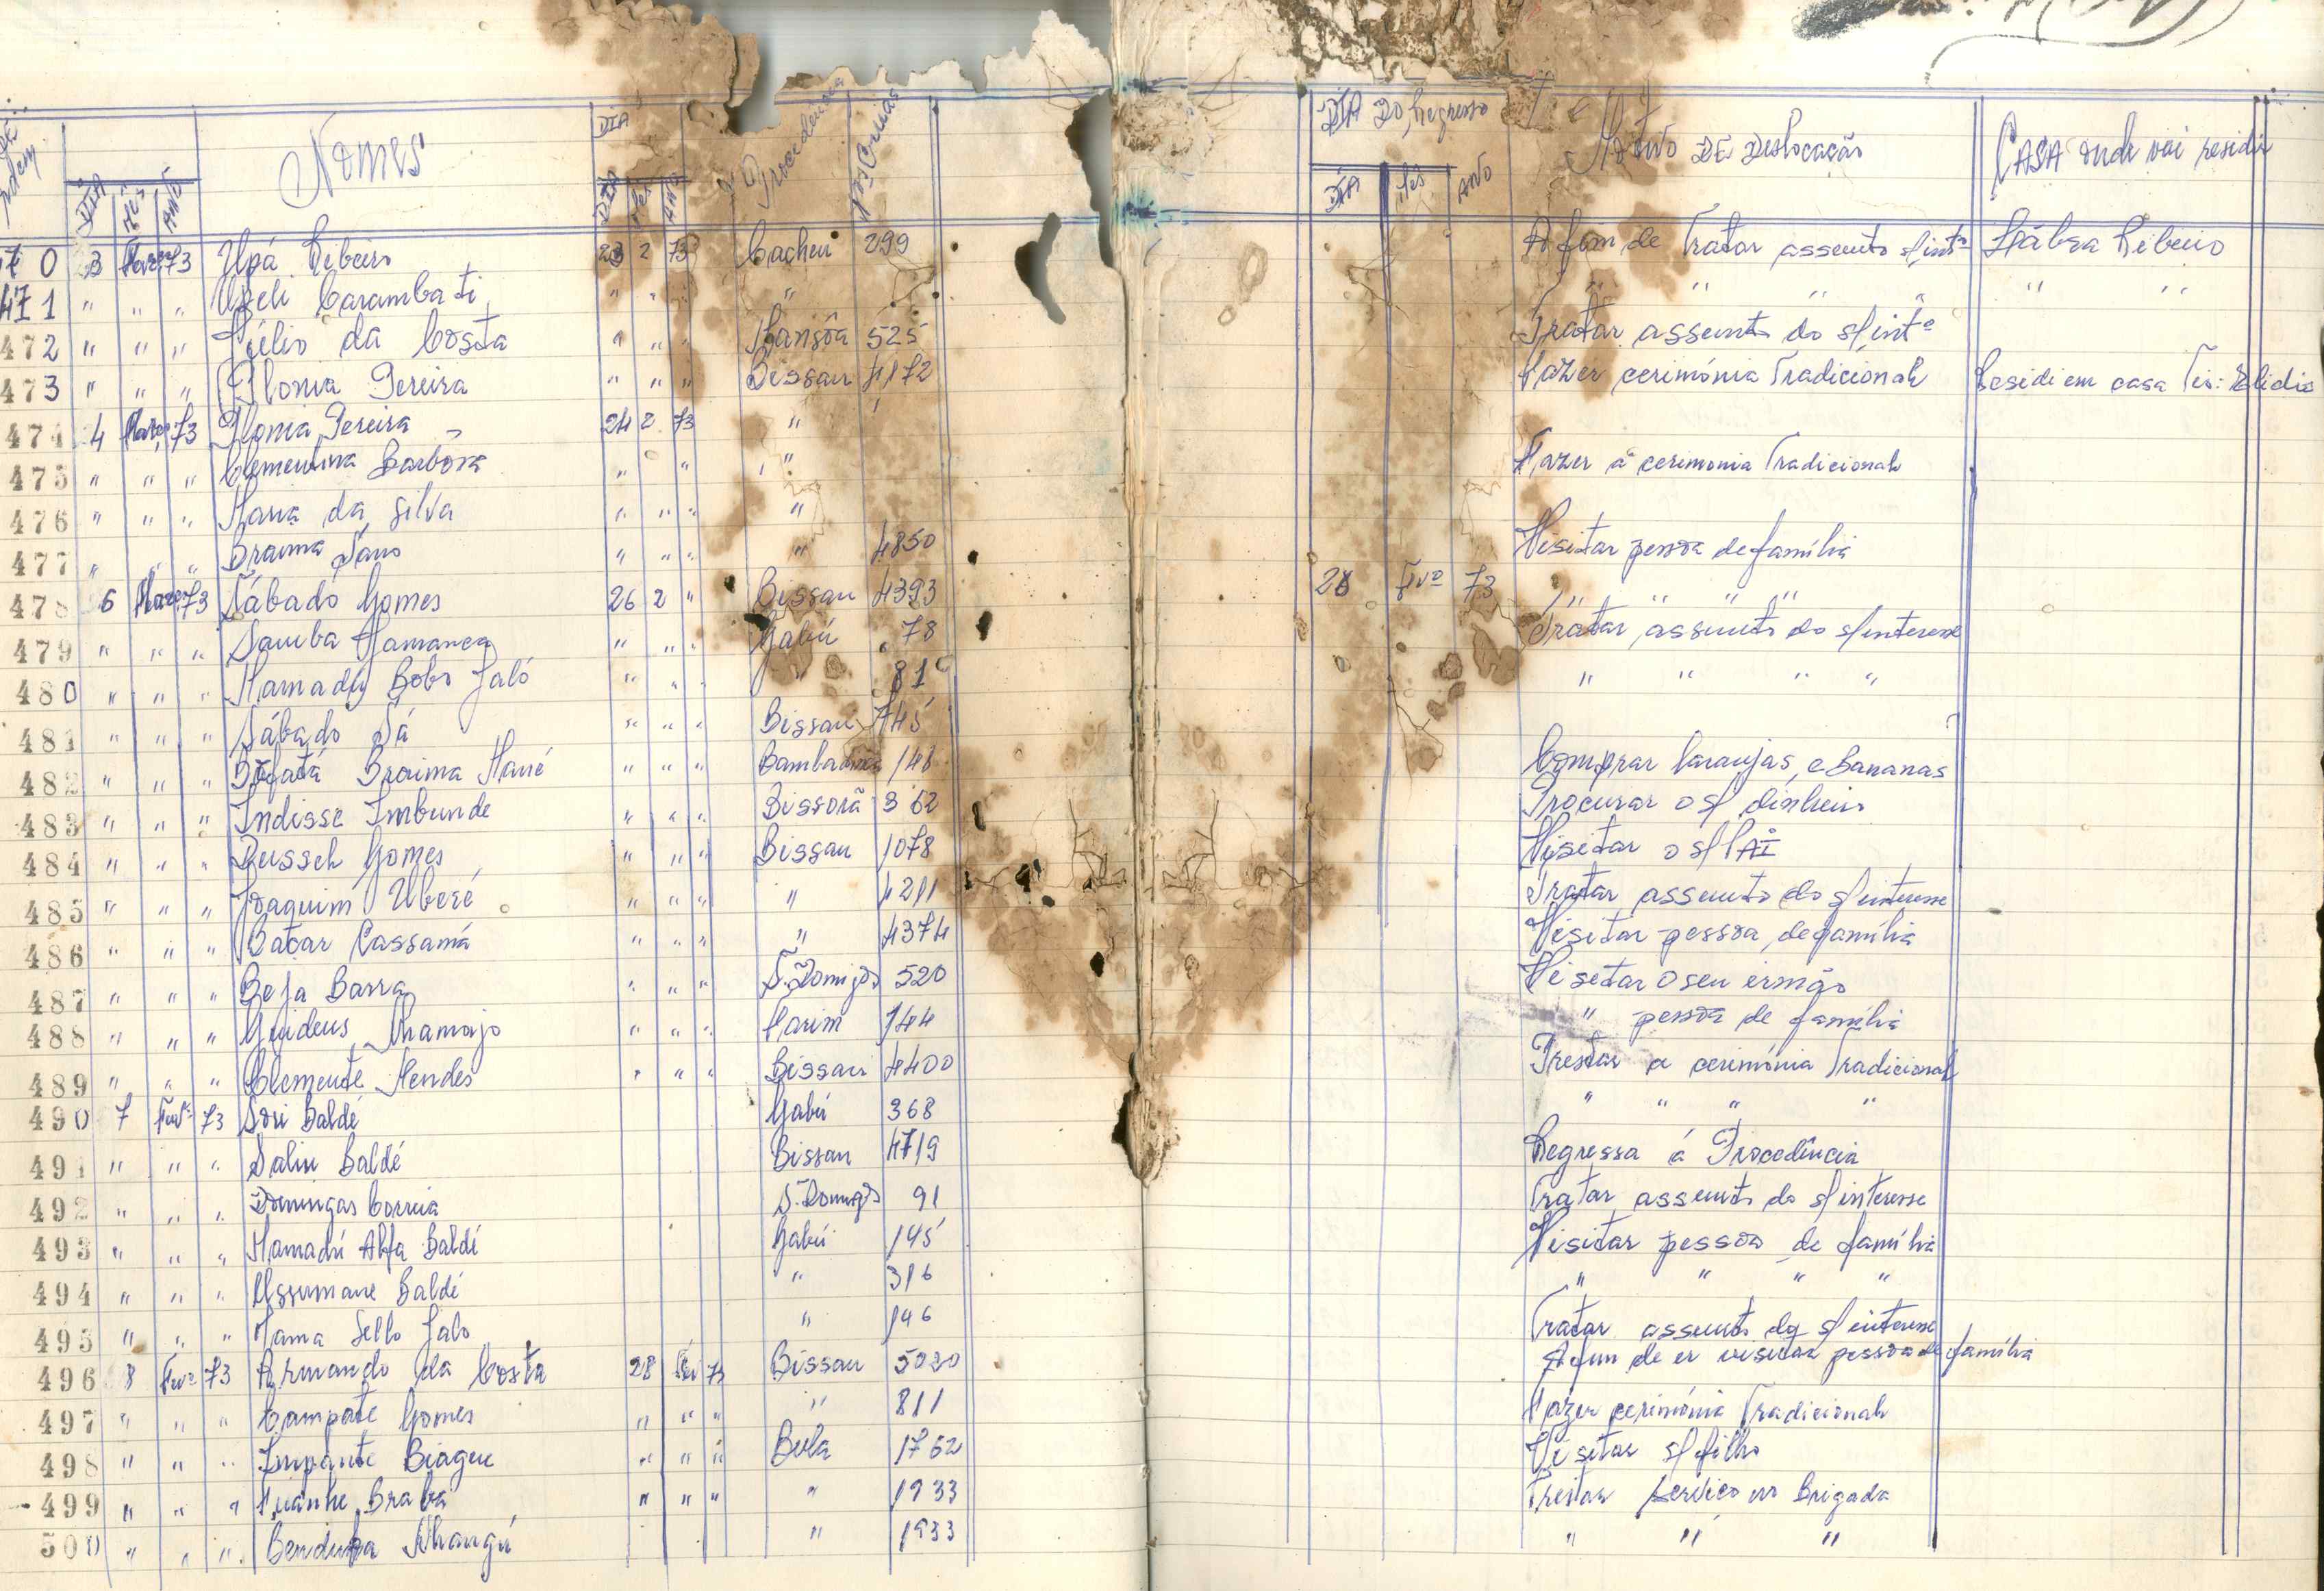 DIA DO Regresso
DIA Procedência Nos Guias Motivo DE Deslocação CASA onde vai residir
DIA Mês ANO Nomes DIA Mês ANO DIA Mês ANO
70 3 Março 73 Upá Ribeiro 23 2 73 Cacheu 299 A fim de Tratar assunto s/intº Ribeiro
471 " " " Carambati " " " " " " " " " "
472 " " " Júlio da Costa " " " Mansôa 525 Tratar assunto do s/intº
473 " " " Pereira " " " Bissau 4172 Fazer cerimónia Tradicional Residi em casa
474 4 Março 73 Pereira 24 2 73 "
475 " " " Clementina Barbosa " " " Fazer a cerimonia Tradicional
476 " " " Maria da Silva " " " "
477 " " " Braima Sano " " " " 4850 Visitar pessoa de família
478 6 Março 73 Sábado Gomes 26 2 " Bissau 4393 28 Fvº 73 " " " "
479 " " " Samba " " " Gabú 78 Tratar assunto do s/interesse
480 " " " Mamadú Bobo Jaló " " " " 81 " " " "
481 " " " Sábado Sá " " " Bissau 745
482 " " " Braima Mané " " " Bambadinca 148 Comprar laranjas e Bananas
483 " " " Indisse Imbunde " " " Bissorã 362 Procurar o s/ dinheiro
484 " " " Gomes " " " Bissau 1078 Visitar o s/ PAI
485 " " " Joaquim Uberé " " " " 4211 Tratar assunto do s/interesse
486 " " " Bacar Cassamá " " " " 4374 Visitar pessoa de família
487 " " " Barra " " " S. Domigos 520 Visetar o seu irmão
488 " " " " " " Farim 144 " pessoa de família
489 " " " Clemente Mendes " " " Bissau 4400 Prestar a cerimónia Tradicional
490 7 Fevº 73 Sori Baldé Gabú 368 " " " "
491 " " " Saliu Baldé Bissau 4719 Regressa á Procedência
492 " " " Domingas Correia S. Domigos 91 Tratar assunto do s/interesse
493 " " " Mamadú Alfa Baldé Gabú 145 Visitar pessoa de família
494 " " " Ussumane Baldé " 316 " " " "
495 " " " Mama Sello Jalo " 146 Tratar assunto do s/interesse
496 8 Fvº 73 Armando da Costa 28 73 Bissau 5020 A fim de er visitar pessoa de família
497 " " " Campate Gomes " " " " 811 Fazer cerimónia Tradicional
498 " " " Impante Biague " " " Bula 1762 Visitar s/ filho
499 " " " Braba " " " " 1933 Prestar serviço na Brigada
500 " " " " 1933 " " "